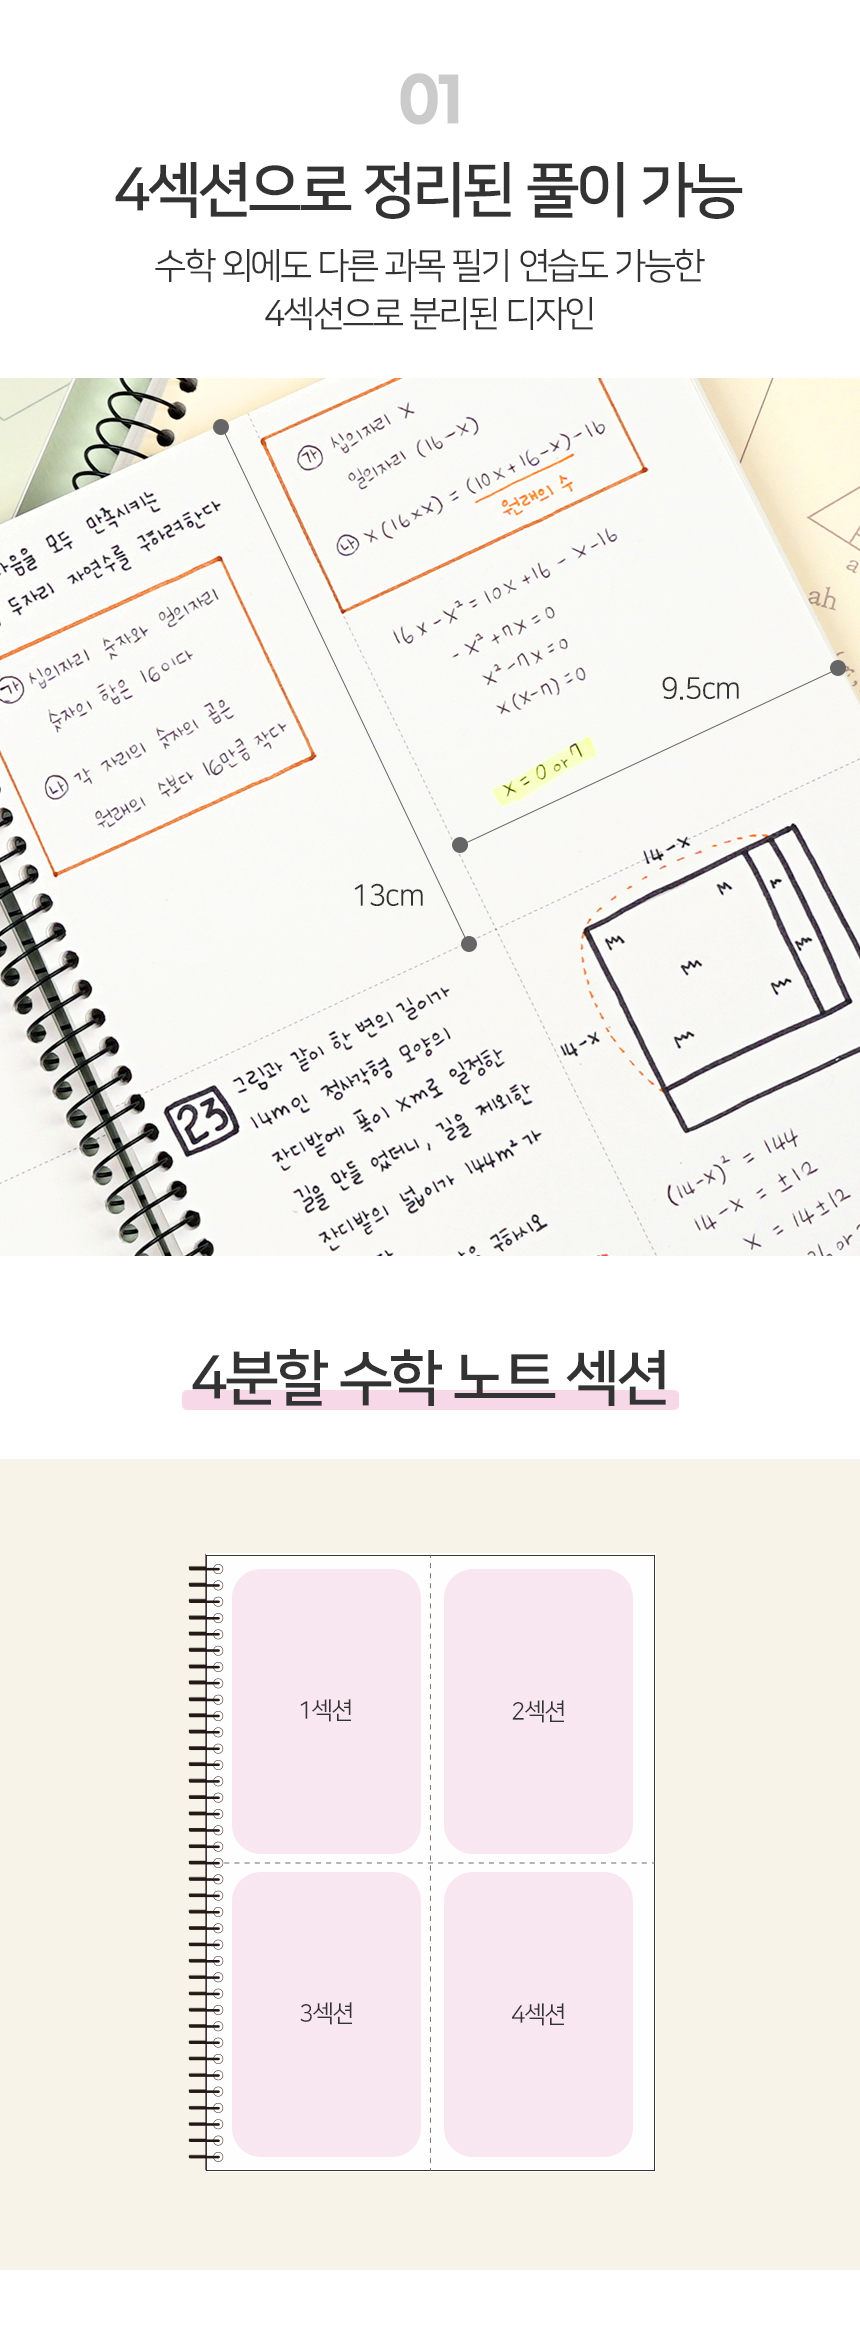 01
4섹션으로 정리된 풀이 가능
수학 외에도 다른 과목 필기 연습도 가능한
4섹션으로 분리된 디자인
모두 만족시키는
두자리 자연수를 구하려한다
㉮ 십의자리 숫자와 일의자리
숫자의 합은 16이다
㉯ 각 자리의 숫자의 곱은
원래의 수보다 16만큼 작다
㉮ 십의자리 X
일의자리 (16-X)
㉯ X(16XX) = (10X+16-X)-16
원래의 수
16X-X²=10X+16-X-16
-X²+7X=0
X²-7X=0
X(X-7)=0
X=0 or 7
9.5cm
13cm
23 그림과 같이 한 변의 길이가
14m인 정사각형 모양의
잔디밭에 폭이 Xm로 일정한
길을 만들었더니, 길을 제외한
잔디밭의 넓이가 144m²가
구하시오
14-X
14-X
(14-X)² = 144
14-X = ±12
X = 14±12
ah
a
4분할 수학 노트 섹션
1섹션
2섹션
3섹션
4섹션